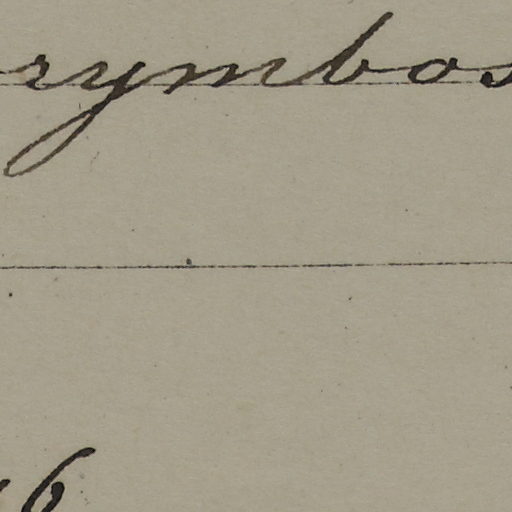 rymbos
6